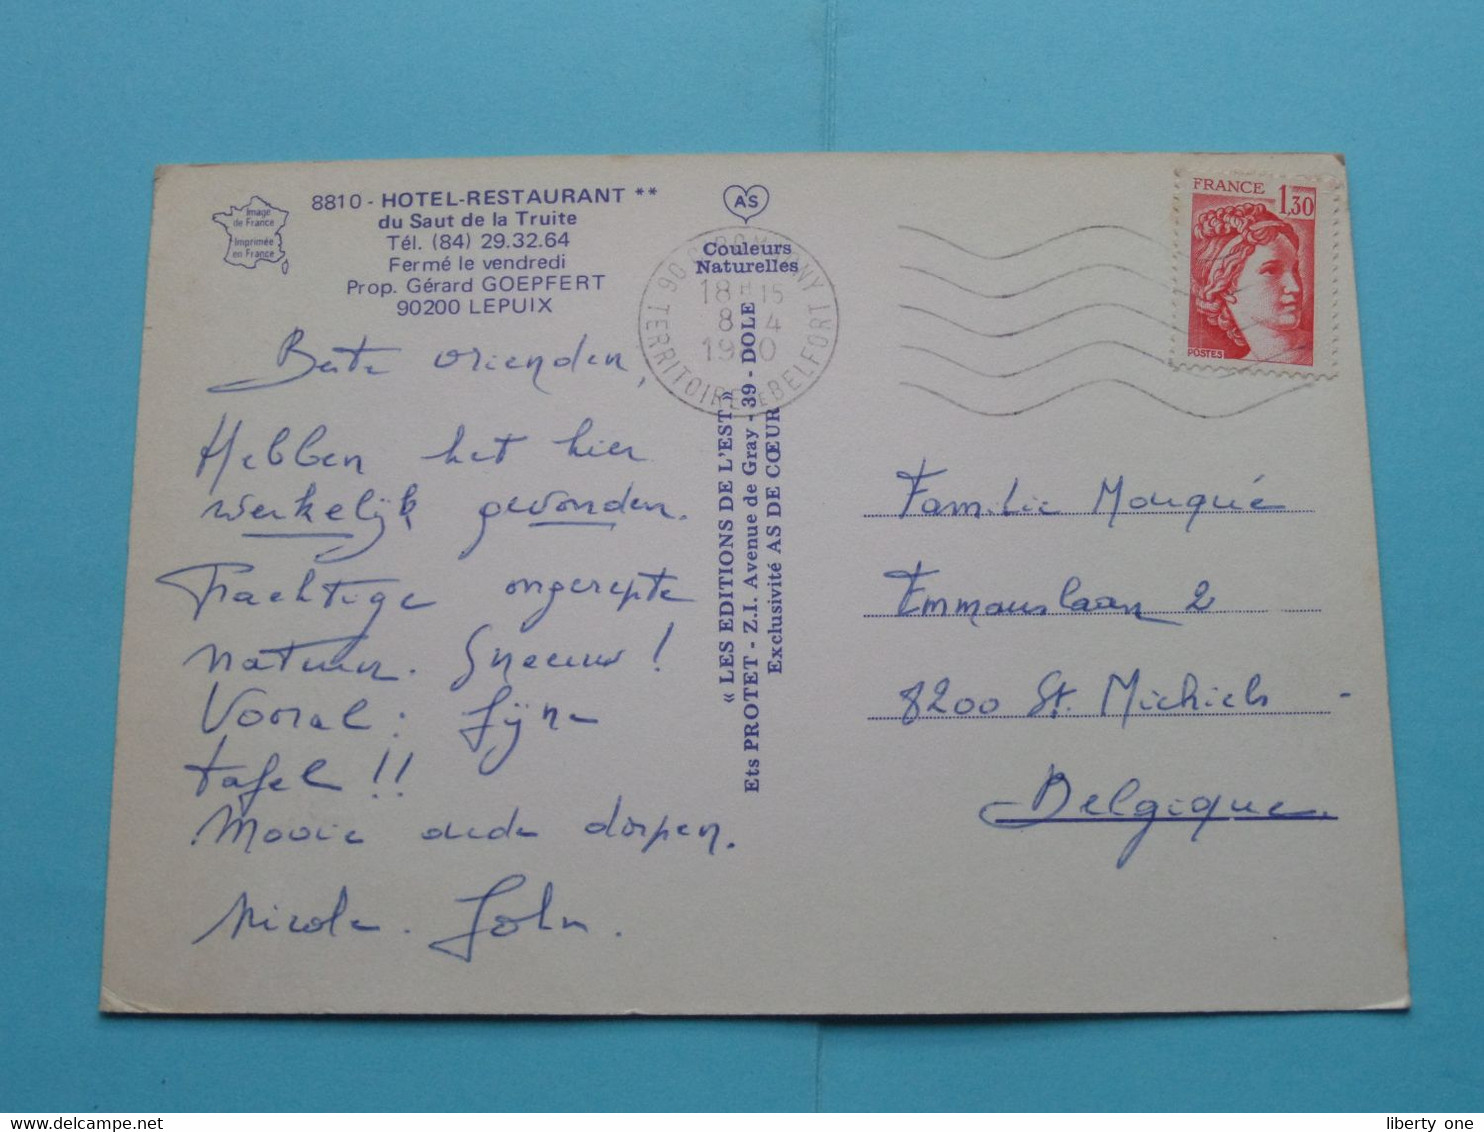 Image
de France
Imprimée
en France
8810 - HOTEL-RESTAURANT **
du Saut de la Truite
Tél. (84) 29.32.64
Fermé le vendredi
Prop. Gérard GOEPFERT
90200 LEPUIX
Beste vrienden,
Hebben het hier
werkelijk gevonden.
Prachtige ongerepte
natuur. Sneeuw !
Vooral : fijne
tafel !!
Mooie oude dorpen.
Nicole. John.
AS
Couleurs
Naturelles
« LES EDITIONS DE L'EST »
Ets PROTET - Z.I. Avenue de Gray - 39 - DOLE
Exclusivité AS DE CŒUR
90 GIROMAGNY
18 H 15
8 - 4
1980
TERRITOIRE DE BELFORT
FRANCE 1,30
POSTES
Familie Mouqué
Emmauslaan 2
8200 St. Michiels -
Belgique.
liberty one